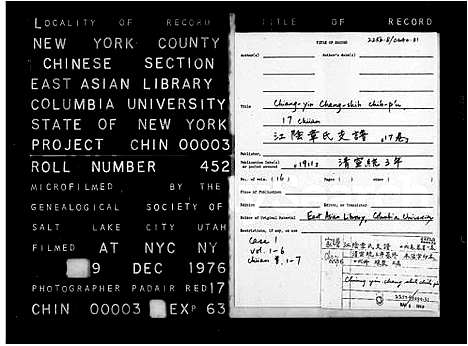 LOCALITY OF RECORD
NEW YORK COUNTY
CHINESE SECTION
EAST ASIAN LIBRARY
COLUMBIA UNIVERSITY
STATE OF NEW YORK
PROJECT CHIN 00003
ROLL NUMBER 452
MICROFILMED BY THE
GENEALOGICAL SOCIETY OF
SALT LAKE CITY UTAH
FILMED AT NYC NY
9 DEC 1976
PHOTOGRAPHER PADAIR RED 17
CHIN 00003 EXP 63
TITLE OF RECORD
TITLE OF RECORD
Author(s)
Author's date(s)
Title
Chiang-yin Chang-shih chih-p'u
17 chüan
江陰章氏支譜 17卷
Publisher
Publication Date(s) or period covered
1911 清宣統3年
No. of vols. (16)
Pages ( )
other ( )
Place of Publication
Editor, or Translator
Holder of Original Material East Asian Library, Columbia University
Restrictions, if any, on use
Case 1
vol. 1-6
chüan 1-7
江陰章氏支譜
Chiang yin chang shih chih p'u